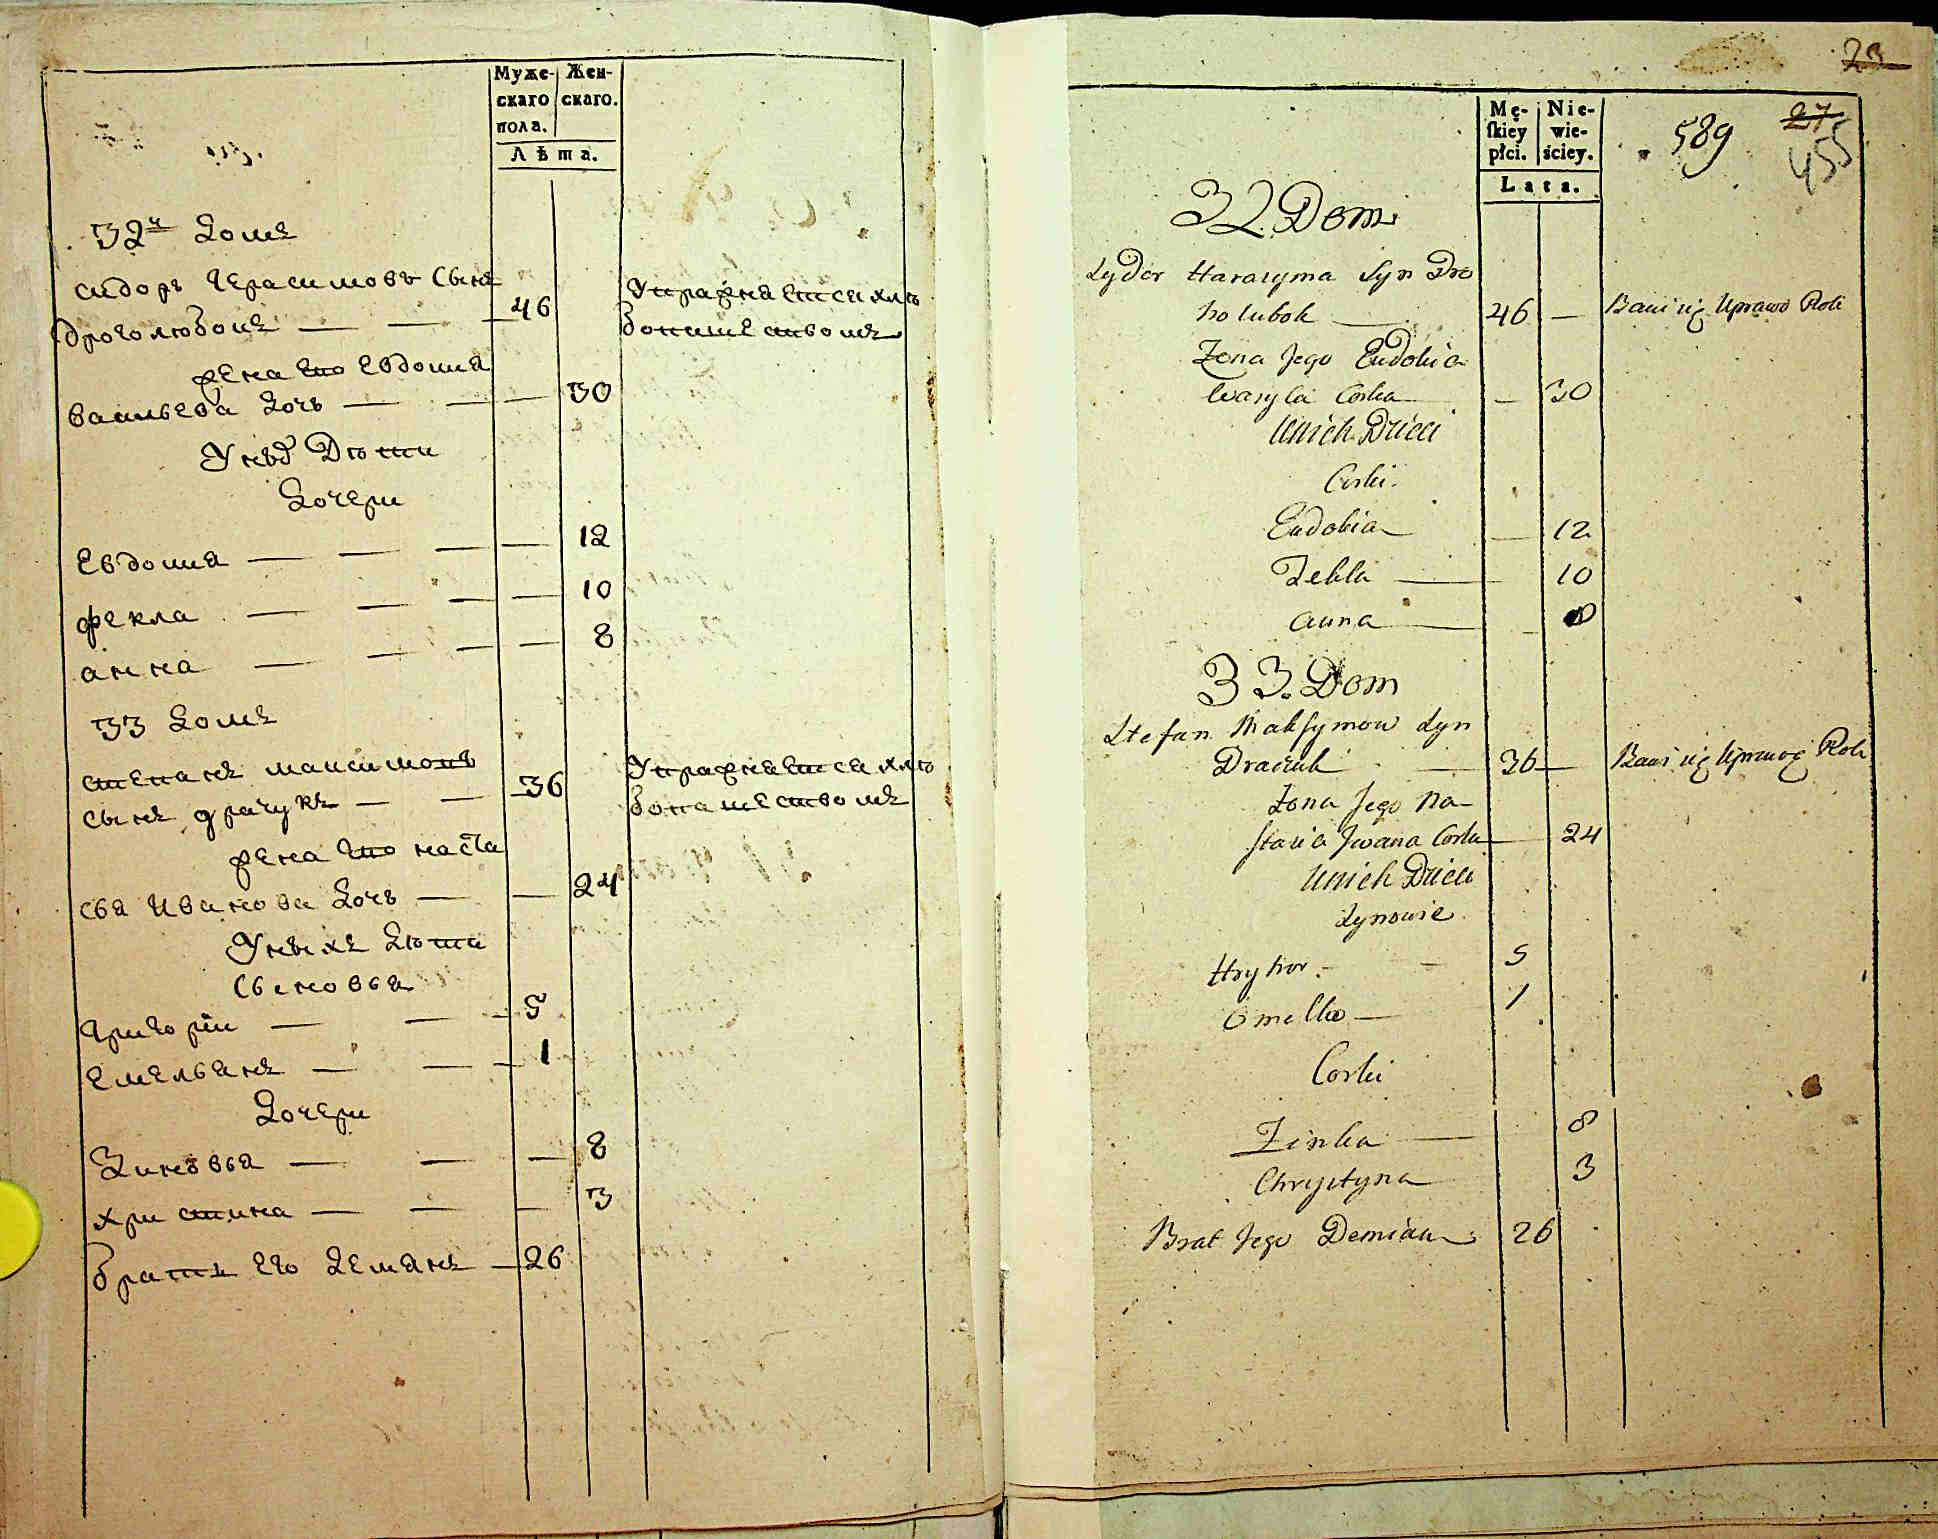 Муже-
скаго
пола.
Жен-
скаго.
Лѣта.
32й Домъ
Сидоръ Герасимовъ Сынъ
Дроголюбокъ — — — 46
Упражняется хлѣ
бопашествомъ
жена его Евдокия
Васильева Дочь — — — 30
У нихъ Дѣти
Дочери
Евдокия — — — — 12
Фекла — — — — 10
Анна — — — — 8
33 Домъ
Степанъ Максимовъ
Сынъ Драчукъ — — 36
Упражняется хлѣ
бопашествомъ
жена его Наста
сья Иванова Дочь — — 24
У нихъ Дѣти
Сыновья
Григорий — — — 5
Емельянъ — — — 1
Дочери
Зиновья — — — 8
Христина — — — 3
братъ его Демянъ — 26
23
27
455
589
Mę-
skiey
płci.
Nie-
wie-
ściey.
Lata.
32. Dom
Sydor Harasyma Syn Dro
holubok — 46 — Bawi się Uprawo Roli
Zona Jego Eudokia
Wasyla Corka — 30
U nich Dzieci
Corki.
Eudokia — 12
Tekla — 10
Anna — 8
33. Dom
Stefan Maksymow Syn
Draczuk — 36 — Bawi się Uprawą Roli
Zona Jego Na
stazia Jwana Corka — 24
U nich Dzieci
Synowie
Hryhor. — 5
Omelko — 1
Corki
Zinka — 8
Chrystyna — 3
Brat Jego Demian 26